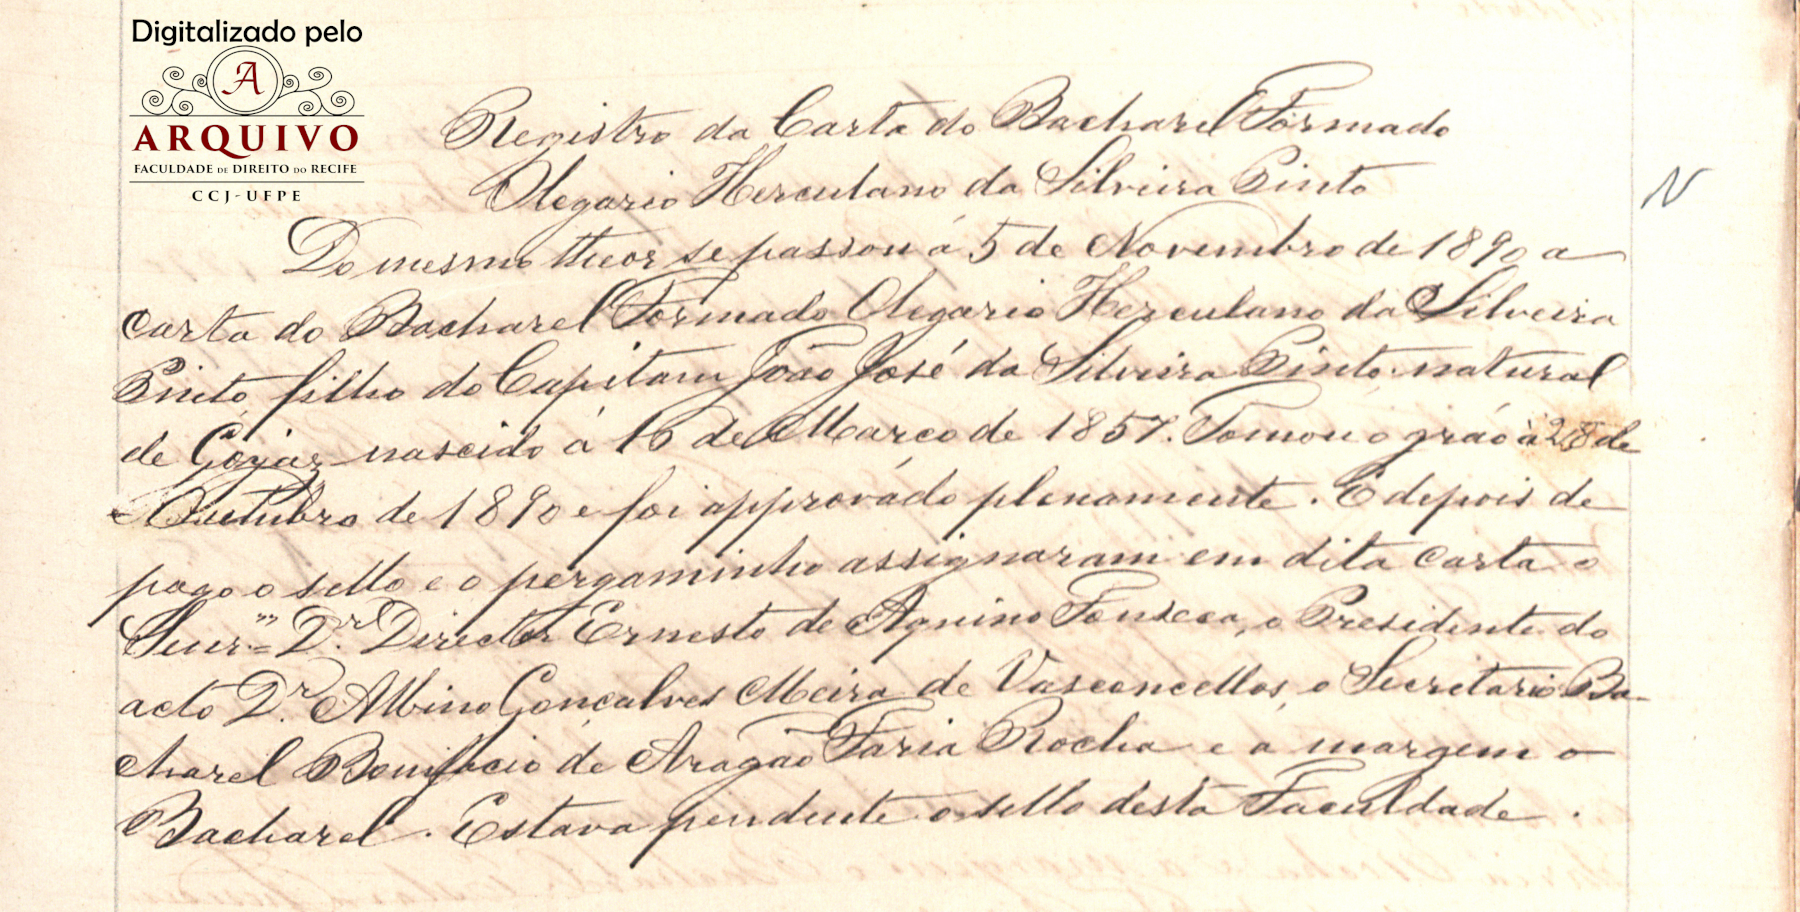 Digitalizado pelo
A
ARQUIVO
FACULDADE DE DIREITO DO RECIFE
CCJ-UFPE
Registro da Carta do Bacharel Formado
Olegario Herculano da Silveira Pinto
N
Do mesmo theor se passou á 5 de Novembro de 1890 a
carta do Bacharel Formado Olegario Herculano da Silveira
Pinto, filho do Capitam João José da Silveira Pinto natural
de Goyaz nascido á 16 de Março de 1857. Tomou o gráo á 28 de
Outubro de 1890 e foi approvádo plenamente. E depois de
pago o sello e o pergaminho assignaram em dita carta o
Dr. Director Ernesto de Aquino Fonseca, o Presidente do
acto Dr. Albino Gonçalves Meira de Vasconcellos, o Secretario Ba-
charel Bonifacio de Aragão Faria Rocha e a margem o
Bacharel. Estava pendente o sello desta Faculdade.